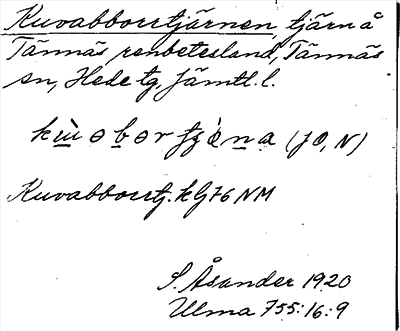 Kuvabborrtjärnen, tjärn å
Tännäs renbetesland, Tännäs
sn, Hede tg, Jämtl. l.
(JO, N)
Kuvabborrtj. kbj 76 NM
S. Åsander 1920
Ulma 755:16:9